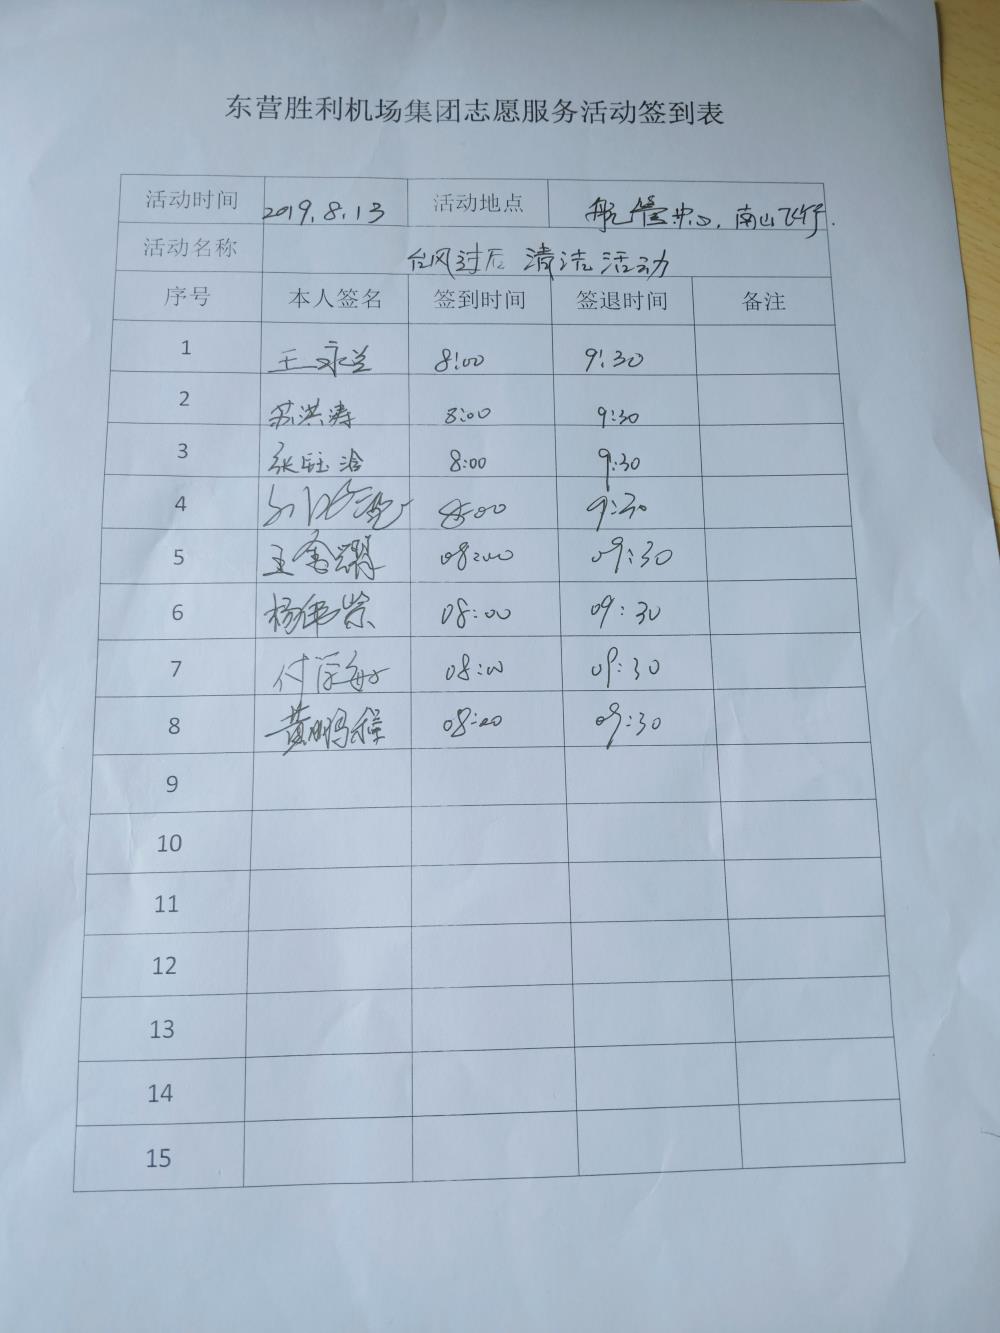 东营胜利机场集团志愿服务活动签到表
活动时间 2019.8.13 活动地点 航管中心,南山飞行.
活动名称 台风过后 清洁活动
序号 本人签名 签到时间 签退时间 备注
1 王永兰 8:00 9:30
2 苏洪涛 8:00 9:30
3 张钰洽 8:00 9:30
4 8:00 9:30
5 王金耀 08:00 09:30
6 杨伟崇 08:00 09:30
7 付学敏 08:00 09:30
8 黄鹏程 08:00 09:30
9
10
11
12
13
14
15